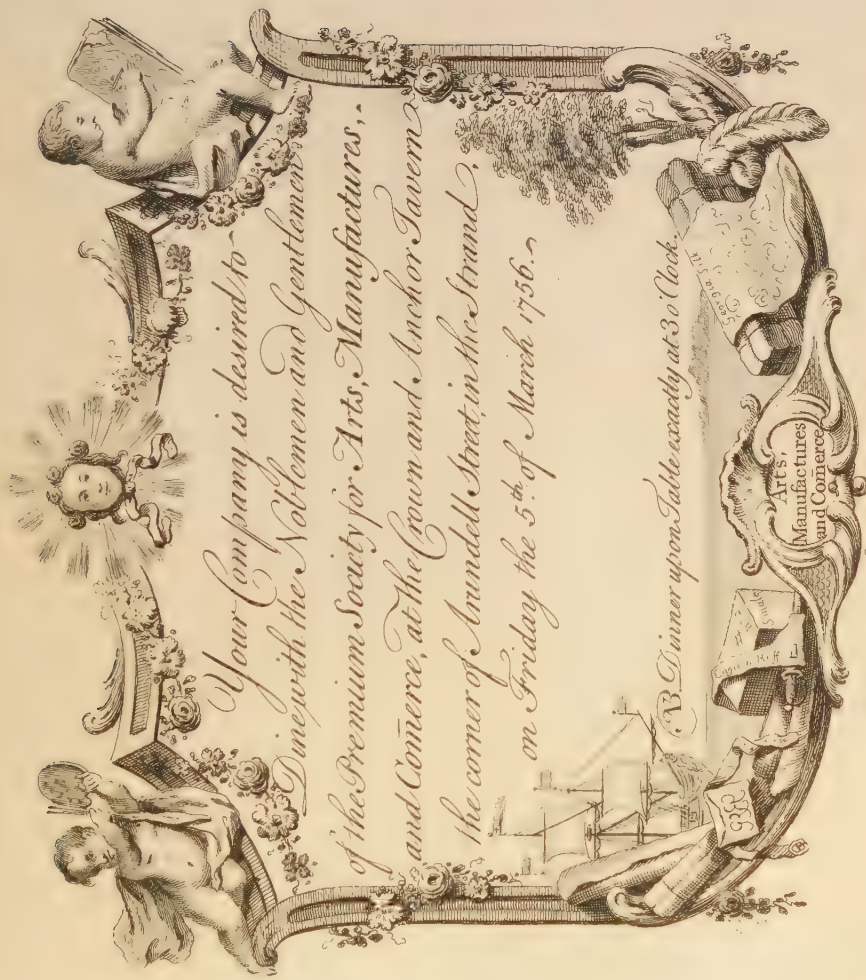 Your Company is desired to
Dine with the Noblemen and Gentlemen
of the Premium Society for Arts, Manufactures,
and Com̄erce, at the Crown and Anchor Tavern
the corner of Arundell Street, in the Strand,
on Friday the 5th. of March 1756.
NB Dinner upon Table exactly at 3 o'Clock.
Georgia Silk
Arts,
Manufactures
and Com̄erce